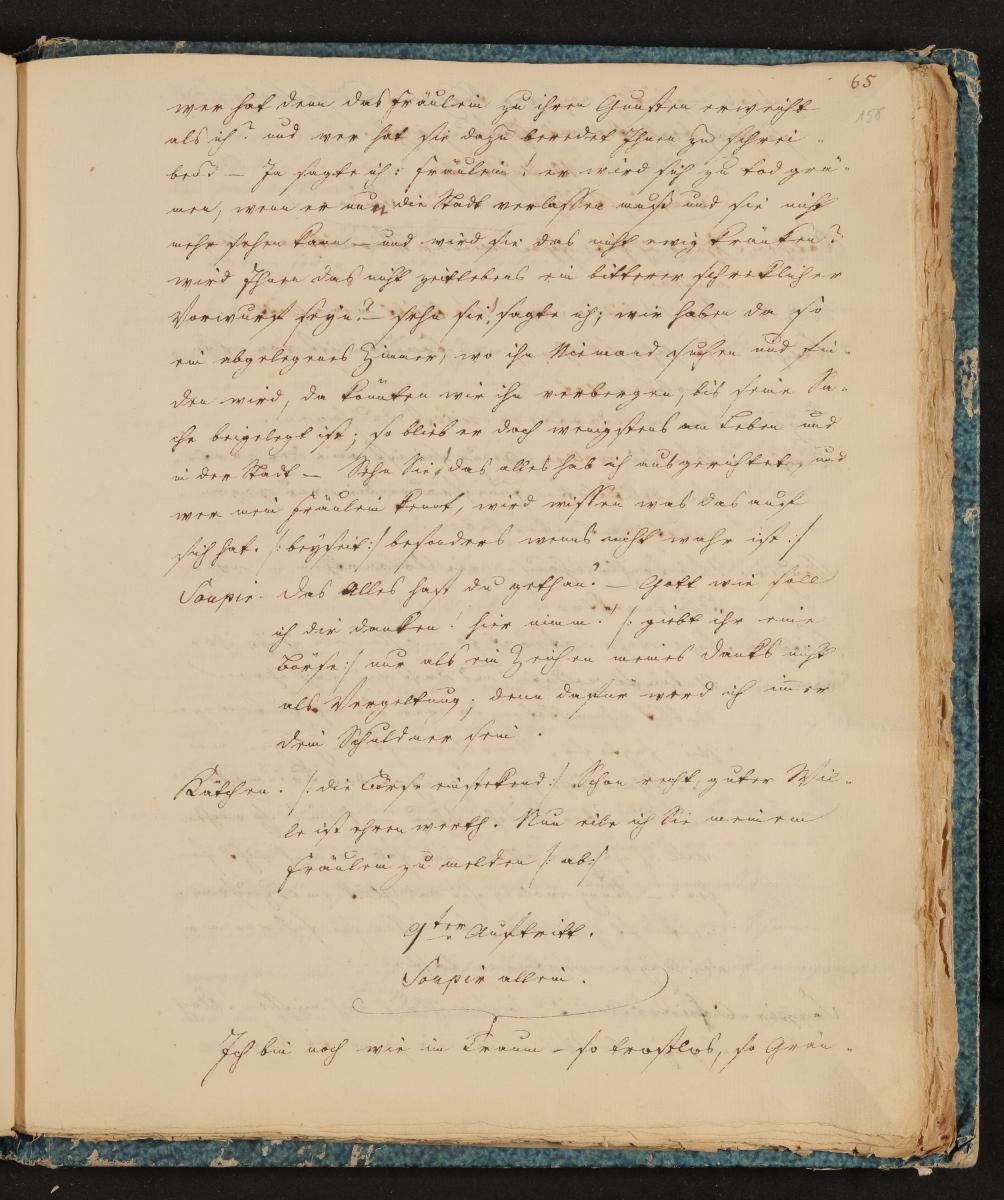 65
158
wer hat denn das Fräulein zu ihren Gunsten erweicht
als ich? und wer hat sie dazu beredet Ihnen zu schrei-
ben? — Ja sagte ich: Fräulein! er wird sich zu tod grä-
men, wenn er nun die Stadt verlassen muß und sie nicht
mehr sehen kann — und wird sie das nicht ewig kränken?
wird Ihnen das nicht zeitlebens ein bitterer schreklicher
Vorwurf seyn? — sehn sie! sagte ich; wir haben da so
ein abgelegenes Zimmer, wo ihn Niemand suchen und fin-
den wird, da könnten wir ihn verbergen, bis seine Sa-
che beigelegt ist; so blieb er doch wenigstens am Leben und
in der Stadt — Sehn Sie! das alles hab ich ausgerichtet, und
wer mein Fräulein kennt, wird wissen was das auf
sich hat. /: beyseit :/ besonders wenns nicht wahr ist :/
Soupir. das Alles hast du gethan? — Gott wie soll
ich dir danken! hier nimm! /: giebt ihr eine
Börse :/ nur als ein Zeichen meines Danks nicht
als Vergeltung; denn dafür werd ich immer
dein Schuldner sein.
Kätchen. /: die Börse einstekend :/ Schon recht, guter Wil-
le ist ehrenwerth. Nun eile ich Sie meinem
Fräulein zu melden /: ab :/
9ter Auftritt.
Soupir allein.
Ich bin noch wie im Traum — so trostlos, so Grän-